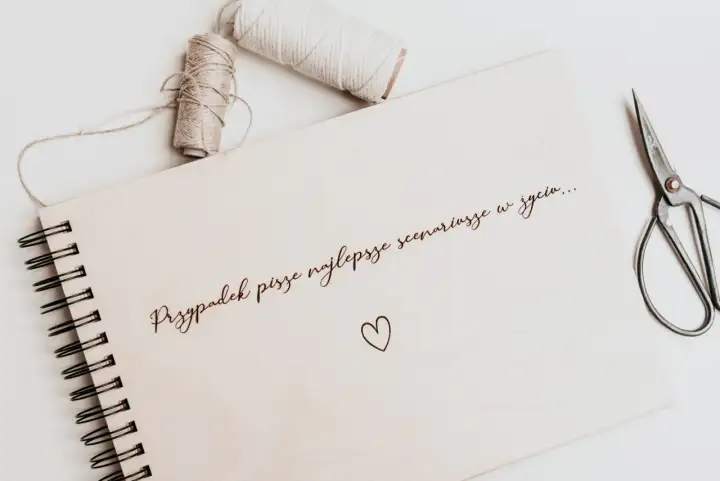 Przypadek pisze najlepsze scenariusze w życiu...